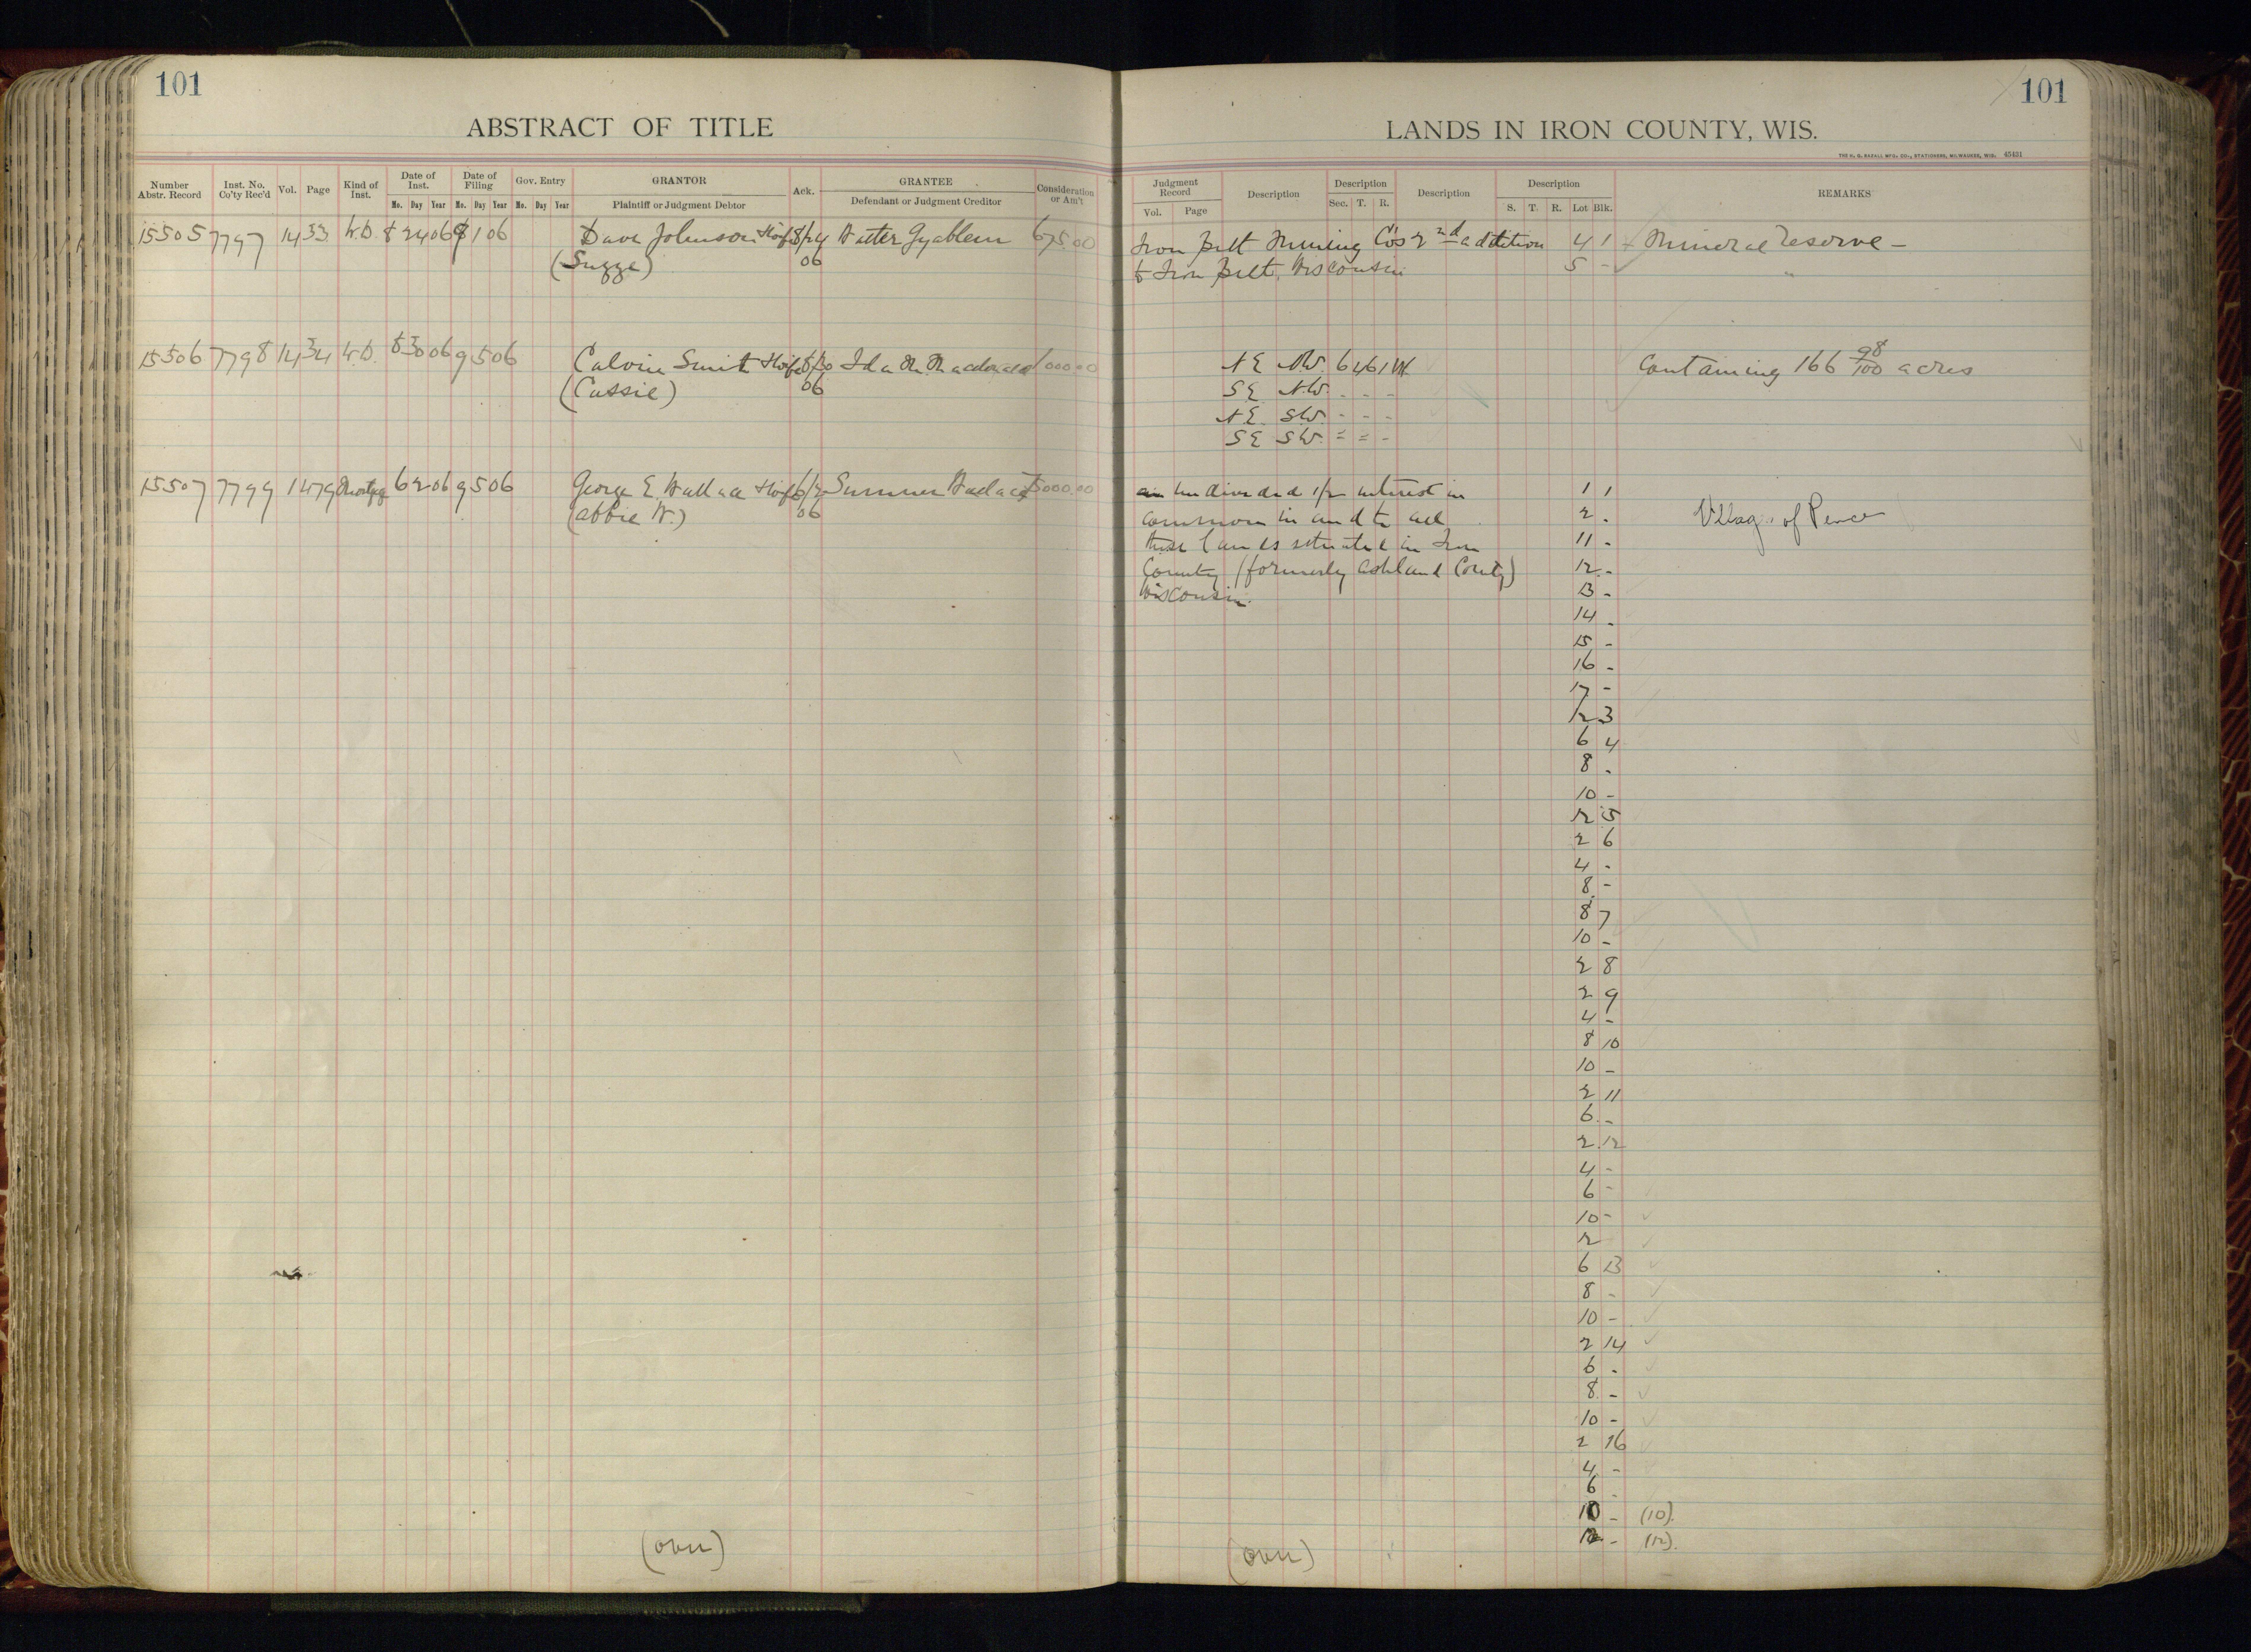 101
ABSTRACT OF TITLE
Number Abstr. Record Inst. No. Co'ty Rec'd Vol. Page Kind of Inst. Date of Inst. Mo. Day Year Date of Filing Mo. Day Year Gov. Entry Mo. Day Year GRANTOR Plaintiff or Judgment Debtor Ack. GRANTEE Defendant or Judgment Creditor Consideration or Am't
15505 7797 14 33 W.D. 8 24 06 9 1 06 Dave Johnson & wife 8/24 675.00
06
15506 7798 14 34 W.D. 8 30 06 9 5 06 Calvin Smith & wife 8/30 Ida M. Macdonald 1000.00
(Cassie) 06
15507 7799 14 79 Mortg 6 2 06 9 5 06 George E. Wallace & wife 6/2 Sumner Wallace 75000.00
(Abbie W.) 06
(over)
101
LANDS IN IRON COUNTY, WIS.
45431
Judgment Record Vol. Page Description Description Sec. T. R. Description Description S. T. R. Lot Blk. REMARKS
Iron Belt Mining Co's 2nd addition 4 1 Mineral reserve -
to Iron Belt, Wisconsin 5 - "
NE NW. 6 46 1W Containing 166 98/100 acres
SE NW. - - -
NE SW. - - -
SE SW. = = -
an undivided 1/2 interest in 1 1
common in and to all 2 - Village of Pence
those lands situated in Iron 11 -
County (formerly Ashland County) 12 -
Wisconsin. 13 -
14 -
15 -
16 -
17 -
12 3
6 4
8 -
10 -
12 5
2 6
4 -
8 -
8 7
10 -
2 8
2 9
4 -
8 10
10 -
2 11
6 -
2 12
4 -
6 -
10 -
2
6 13
8 -
10 -
2 14
6 -
8 -
10 -
2 16
4 -
6 -
10 - (10).
12 - (12).
(over)